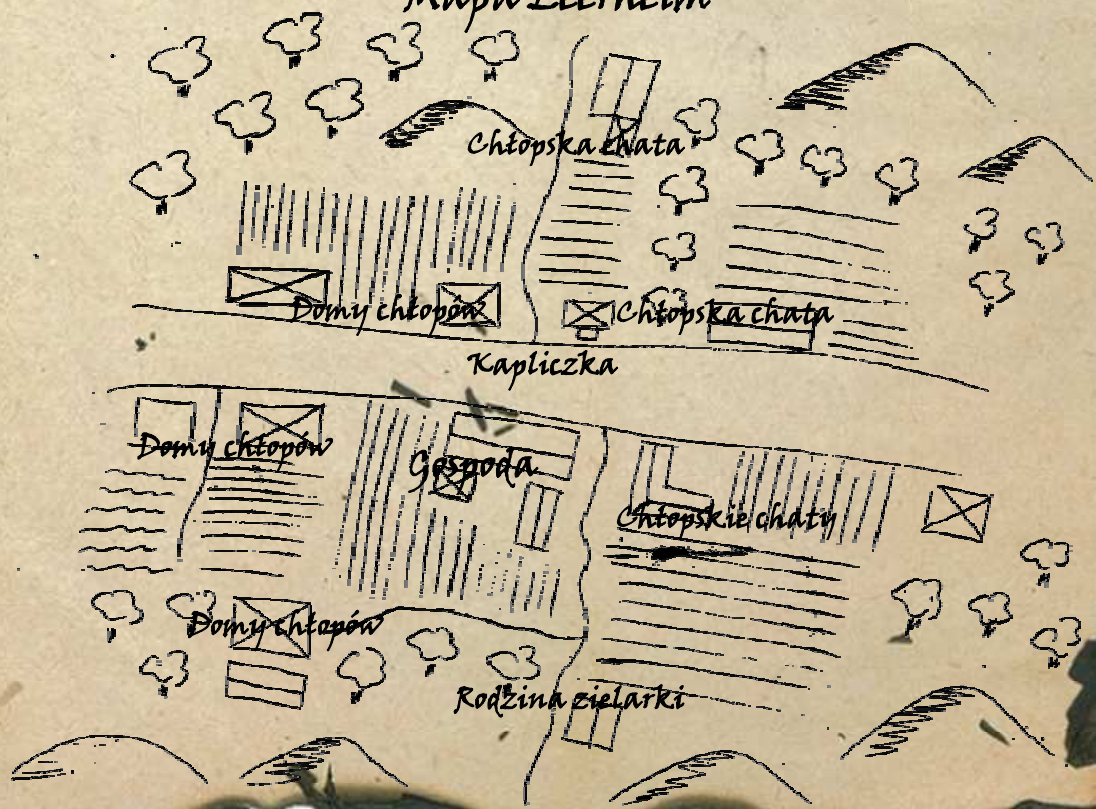 Mapa
Chłopska chata
Domy chłopów
Chłopska chata
Kapliczka
Domy chłopów
Gospoda
Chłopskie chaty
Domy chłopów
Rodzina zielarki